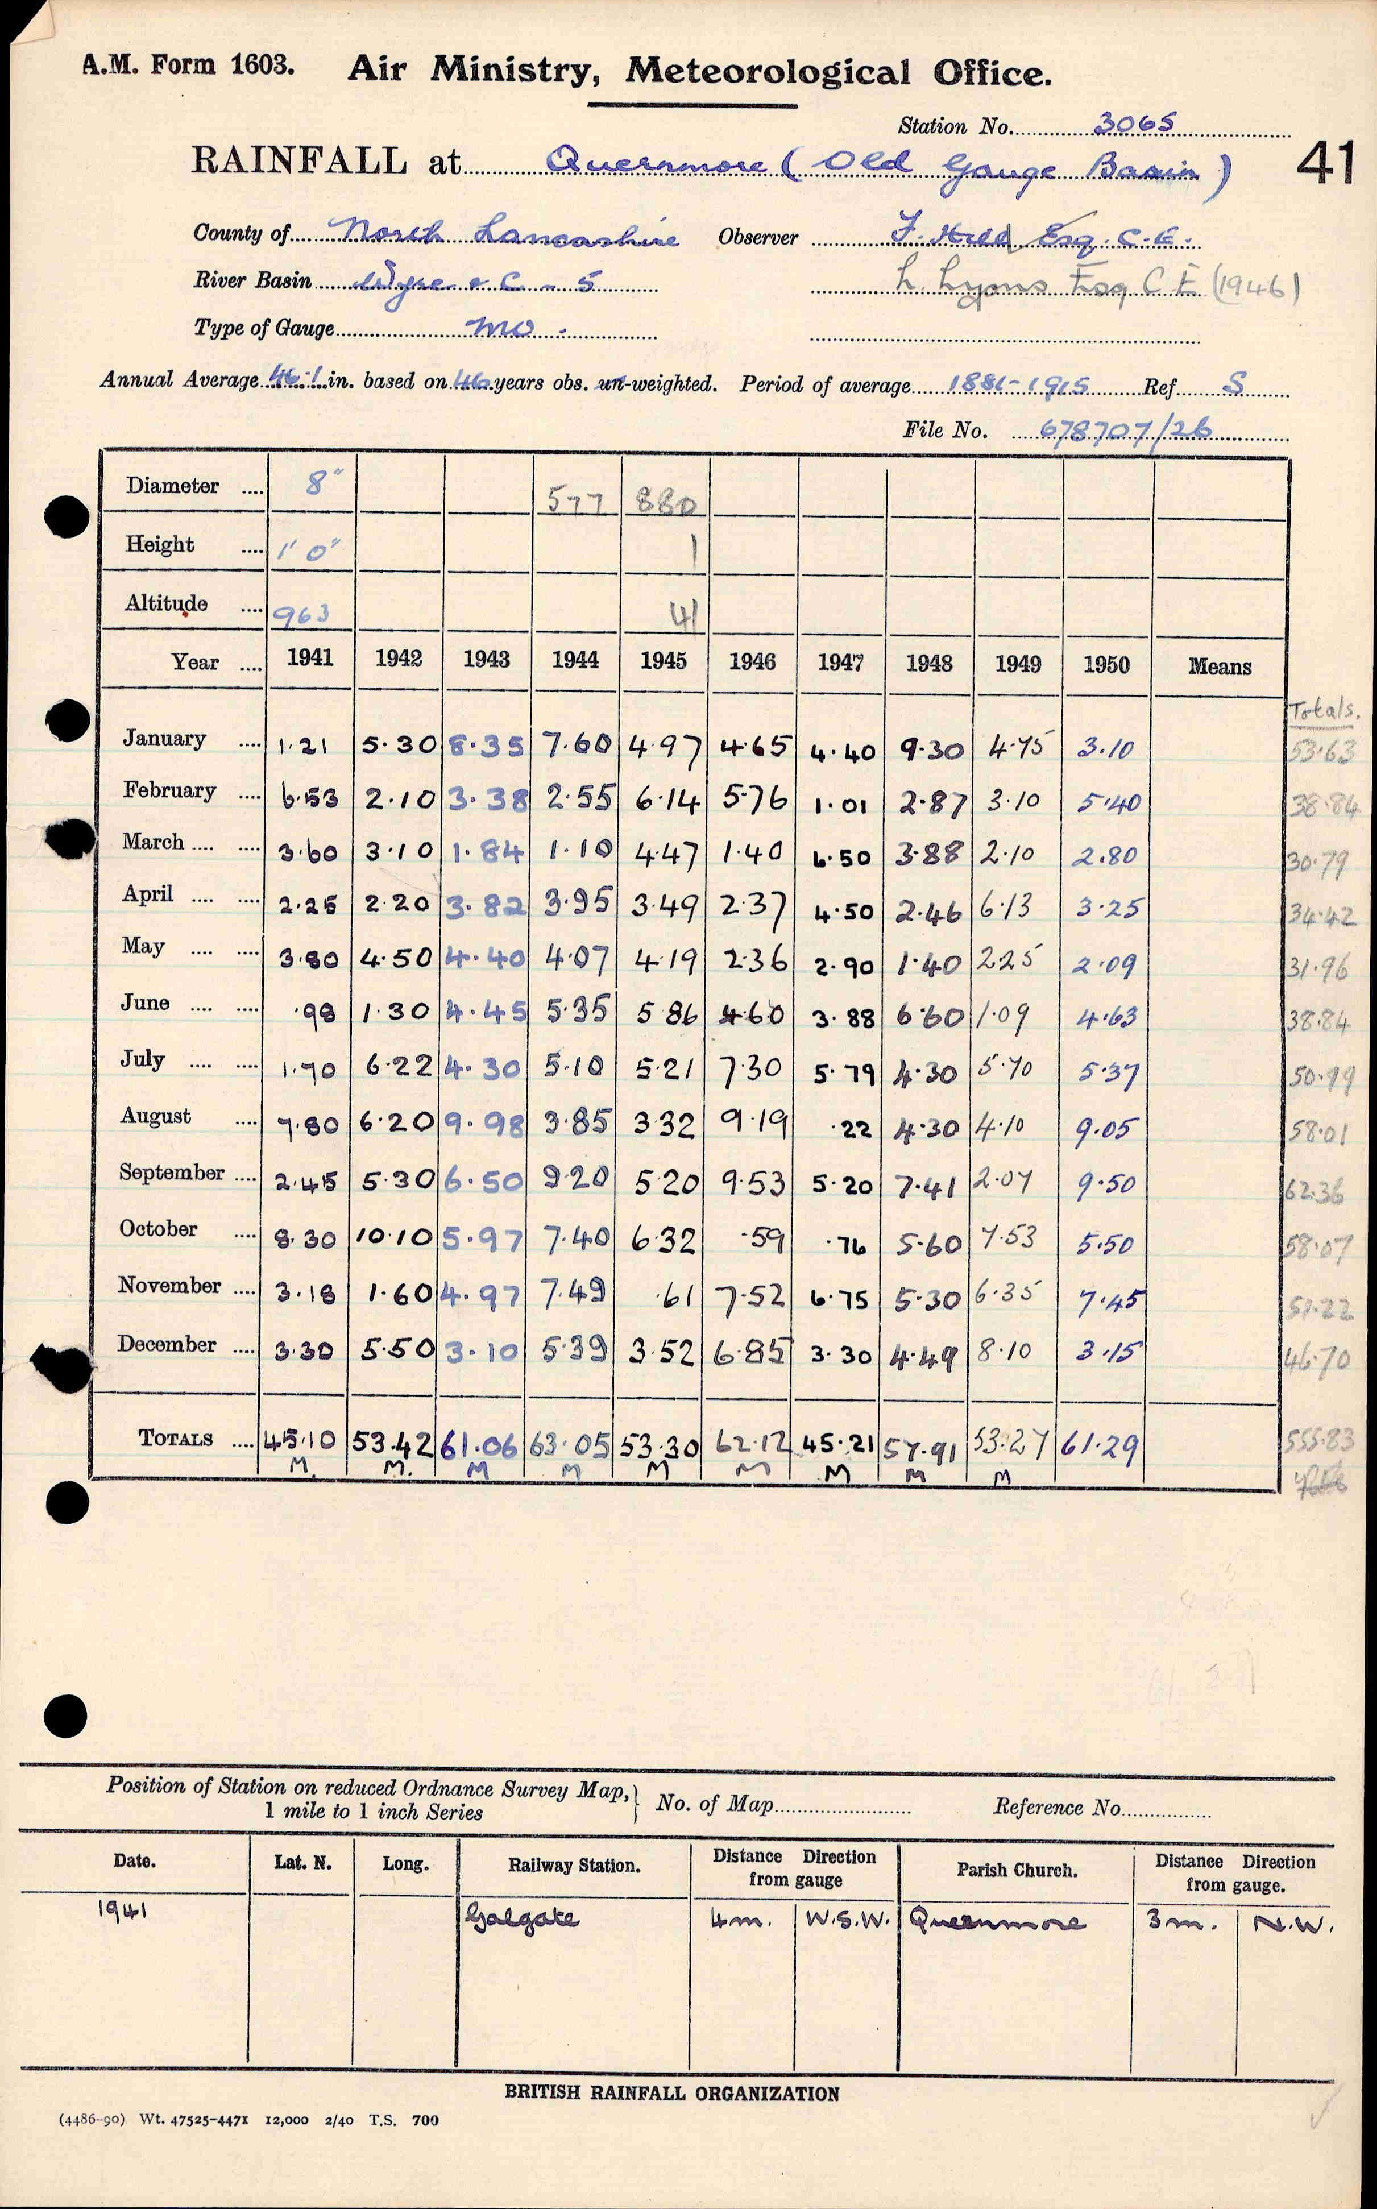 A.M. Form 1603. Air Ministry, Meteorological Office.
Station No. 3065
41
RAINFALL at Quernmore (Old Gauge Basin)
County of North Lancashire Observer F. Hild Esq. C.E.
River Basin Wyre & C - 5 L Lyons Esq C E (1946)
Type of Gauge MO.
Annual Average 46.1 in. based on 46 years obs. un-weighted. Period of average 1881-1915 Ref S
File No. 678707/26
Diameter .... 8" 577 880
Height .... 1' 0" 1
Altitude .... 963 41
Year .... 1941 1942 1943 1944 1945 1946 1947 1948 1949 1950 Means
Totals.
January .... 1.21 5.30 8.35 7.60 4.97 4.65 4.40 9.30 4.75 3.10 53.63
February .... 6.53 2.10 3.38 2.55 6.14 5.76 1.01 2.87 3.10 5.40 38.84
March .... .... 3.60 3.10 1.84 1.10 4.47 1.40 6.50 3.88 2.10 2.80 30.79
April .... .... 2.25 2.20 3.82 3.95 3.49 2.37 4.50 2.46 6.13 3.25 34.42
May .... .... 3.80 4.50 4.40 4.07 4.19 2.36 2.90 1.40 2.25 2.09 31.96
June .... .... .98 1.30 4.45 5.35 5.86 4.60 3.88 6.60 1.09 4.63 38.84
July .... .... 1.70 6.22 4.30 5.10 5.21 7.30 5.79 4.30 5.70 5.37 50.99
August .... 7.80 6.20 9.98 3.85 3.32 9.19 .22 4.30 4.10 9.05 58.01
September .... 2.45 5.30 6.50 9.20 5.20 9.53 5.20 7.41 2.07 9.50 62.36
October .... 8.30 10.10 5.97 7.40 6.32 .59 .76 5.60 7.53 5.50 58.07
November .... 3.18 1.60 4.97 7.49 .61 7.52 6.75 5.30 6.35 7.45 51.22
December .... 3.30 5.50 3.10 5.39 3.52 6.85 3.30 4.49 8.10 3.15 46.70
TOTALS .... 45.10 53.42 61.06 63.05 53.30 62.12 45.21 57.91 53.27 61.29 555.83
M. M. M M M M M M M
Position of Station on reduced Ordnance Survey Map,
1 mile to 1 inch Series } No. of Map Reference No.
Date. Lat. N. Long. Railway Station. Distance Direction from gauge Parish Church. Distance Direction from gauge.
1941 Galgate 4m. W.S.W. Quernmore 3m. N.W.
BRITISH RAINFALL ORGANIZATION
(4486-90) Wt. 47525-4471 12,000 2/40 T.S. 700